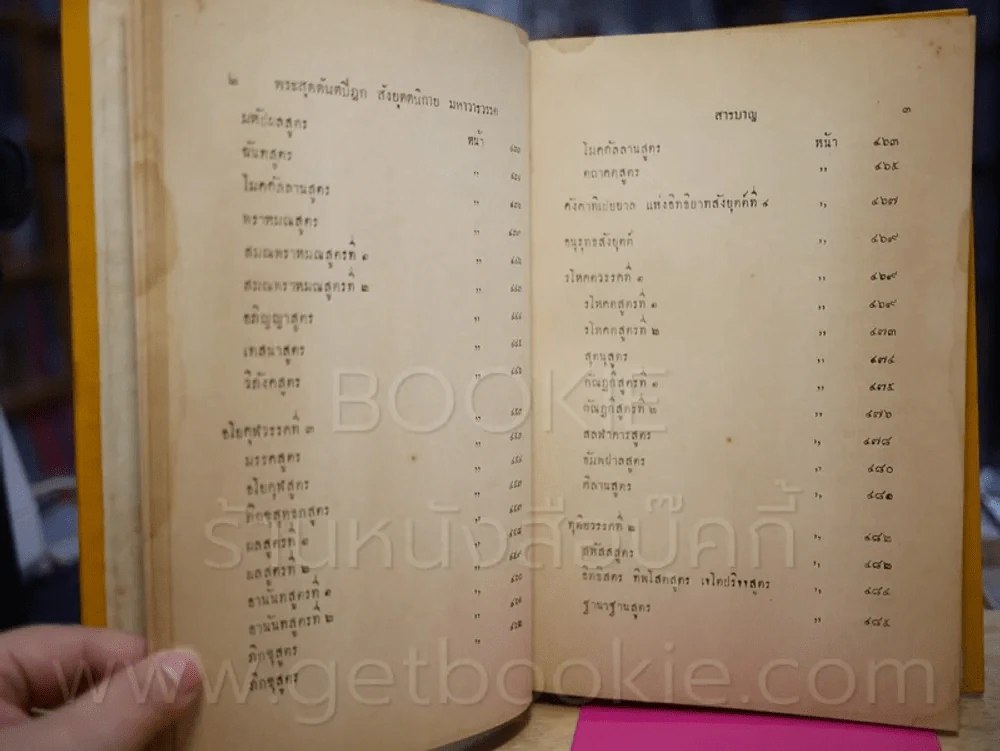 ๒ พระสุตตันตปิฎก สังยุตตนิกาย มหาวารวรรค
หน้า
มหัปผลสูตร
ฉันทสูตร
โมคคัลลานสูตร
พราหมณสูตร
สมณพราหมณสูตรที่ ๑
สมณพราหมณสูตรที่ ๒
อภิญญาสูตร
เทสนาสูตร
วิภังคสูตร
อโยคุฬวรรคที่ ๓
มรรคสูตร
อโยคุฬสูตร
ภิกขุสุทธกสูตร
ผลสูตรที่ ๑
ผลสูตรที่ ๒
อานันทสูตรที่ ๑
อานันทสูตรที่ ๒
ภิกขุสูตร
ภิกขุสูตร
สารบาญ ๓
โมคคัลลานสูตร หน้า ๔๖๓
ตถาคตสูตร " ๔๖๕
คังคาทิเปยยาล แห่งอิทธิบาทสังยุตต์ที่ ๔ " ๔๖๗
อนุรุทธสังยุตต์ " ๔๖๙
รโหคตวรรคที่ ๑ " ๔๖๙
รโหคตสูตรที่ ๑ " ๔๖๙
รโหคตสูตรที่ ๒ " ๔๗๓
สุตนุสูตร " ๔๗๔
กัณฏกีสูตรที่ ๑ " ๔๗๕
กัณฏกีสูตรที่ ๒ " ๔๗๖
สลฬาคารสูตร " ๔๗๘
อัมพปาลสูตร " ๔๘๐
คิลานสูตร " ๔๘๑
ทุติยวรรคที่ ๒ " ๔๘๒
สหัสสสูตร " ๔๘๒
อิทธิสูตร ทิพโสตสูตร เจโตปริจจสูตร " ๔๘๔
ฐานาฐานสูตร " ๔๘๕
BOOKIE
ร้านหนังสือบุ๊คกี้
www.getbookie.com